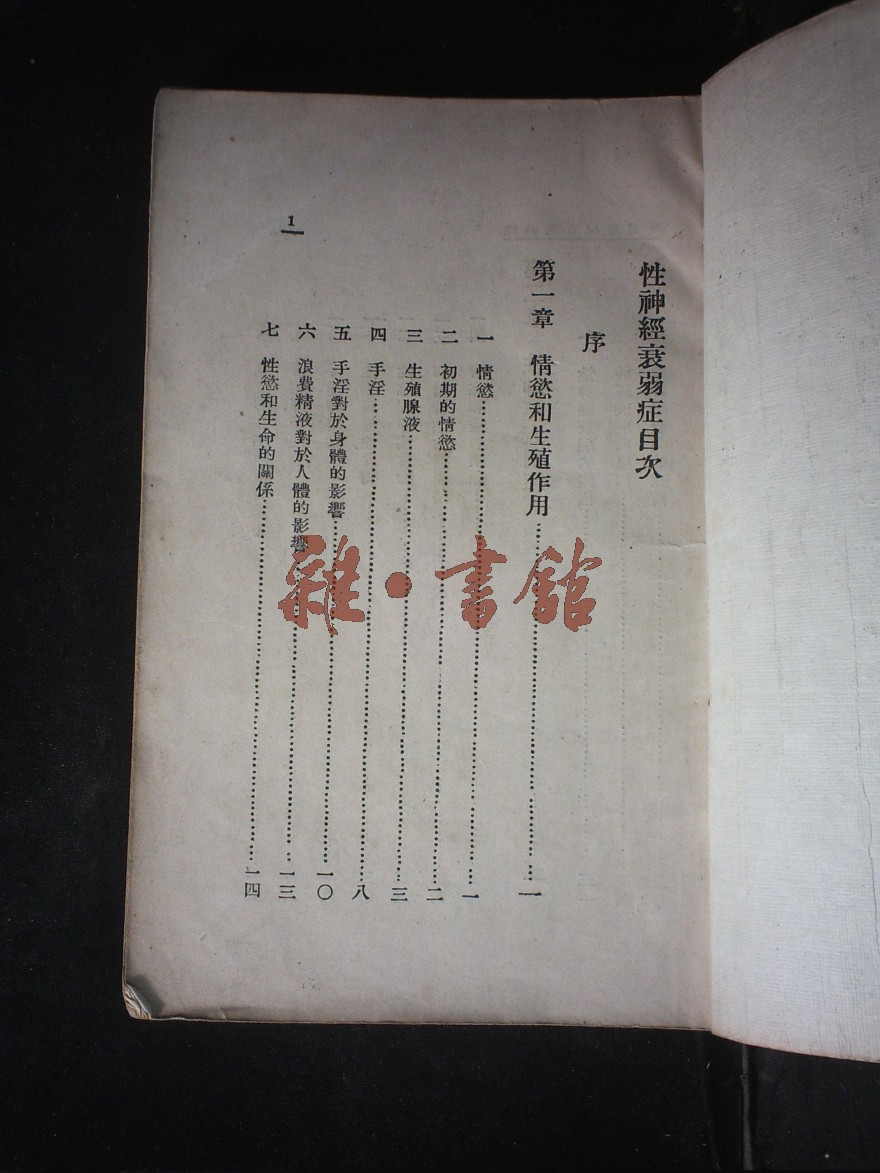 性神經衰弱症目次
序
第一章 情慾和生殖作用……一
一 情慾……一
二 初期的情慾……二
三 生殖腺液……三
四 手淫……八
五 手淫對於身體的影響……一〇
六 浪費精液對於人體的影響……一三
七 性慾和生命的關係……一四
1
雜·書館